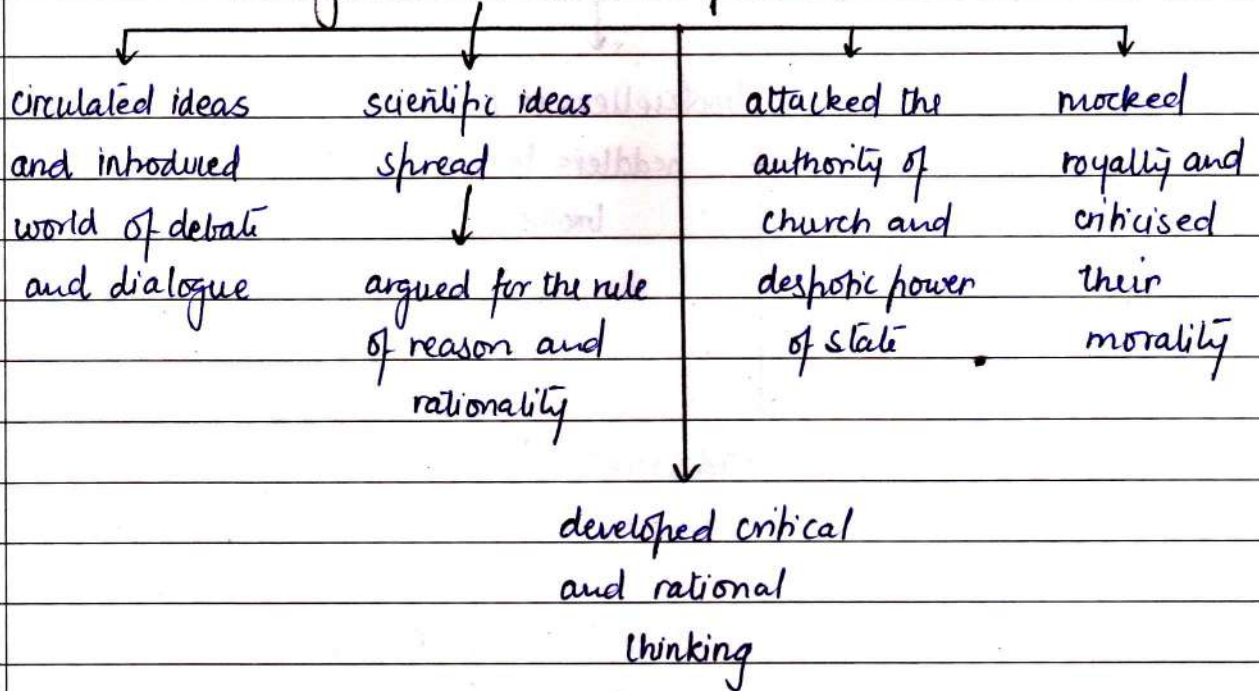 circulated ideas
and introduced
world of debate
and dialogue
scientific ideas
spread
argued for the rule
of reason and
rationality
attacked the
authority of
church and
despotic power
of state
mocked
royalty and
criticised
their
morality
developed critical
and rational
thinking